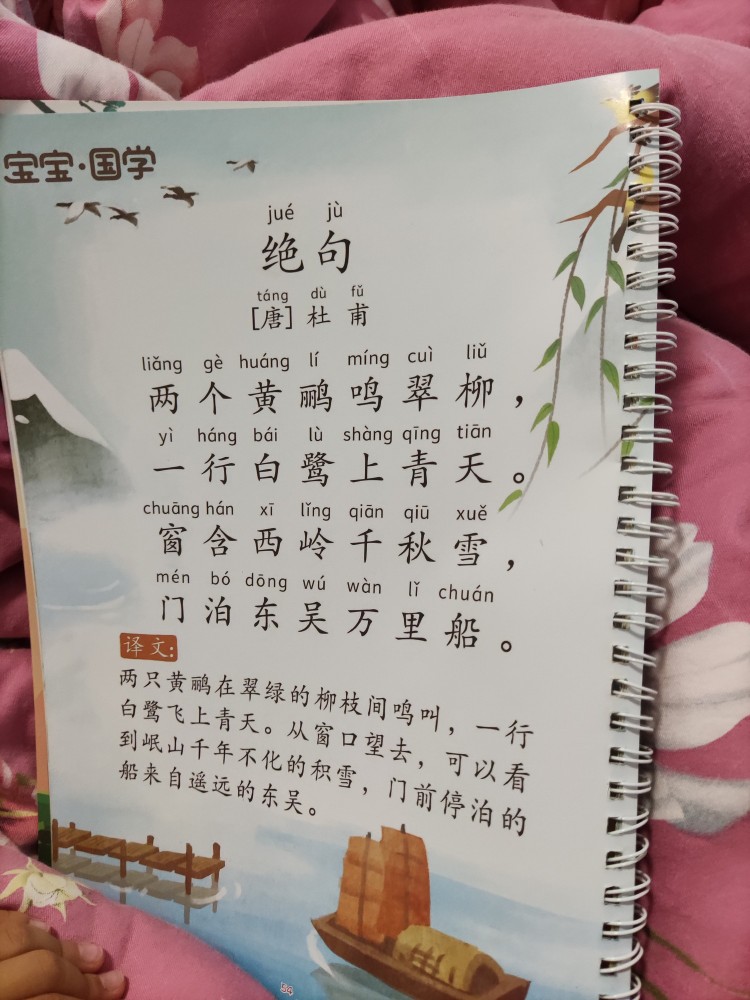 宝宝·国学
jué jù
绝句
táng dù fǔ
[唐] 杜 甫
liǎng gè huáng lí míng cuì liǔ
两个黄鹂鸣翠柳，
yì háng bái lù shàng qīng tiān
一行白鹭上青天。
chuāng hán xī lǐng qiān qiū xuě
窗含西岭千秋雪，
mén bó dōng wú wàn lǐ chuán
门泊东吴万里船。
译文:
两只黄鹂在翠绿的柳枝间鸣叫，一行
白鹭飞上青天。从窗口望去，可以看
到岷山千年不化的积雪，门前停泊的
船来自遥远的东吴。
54